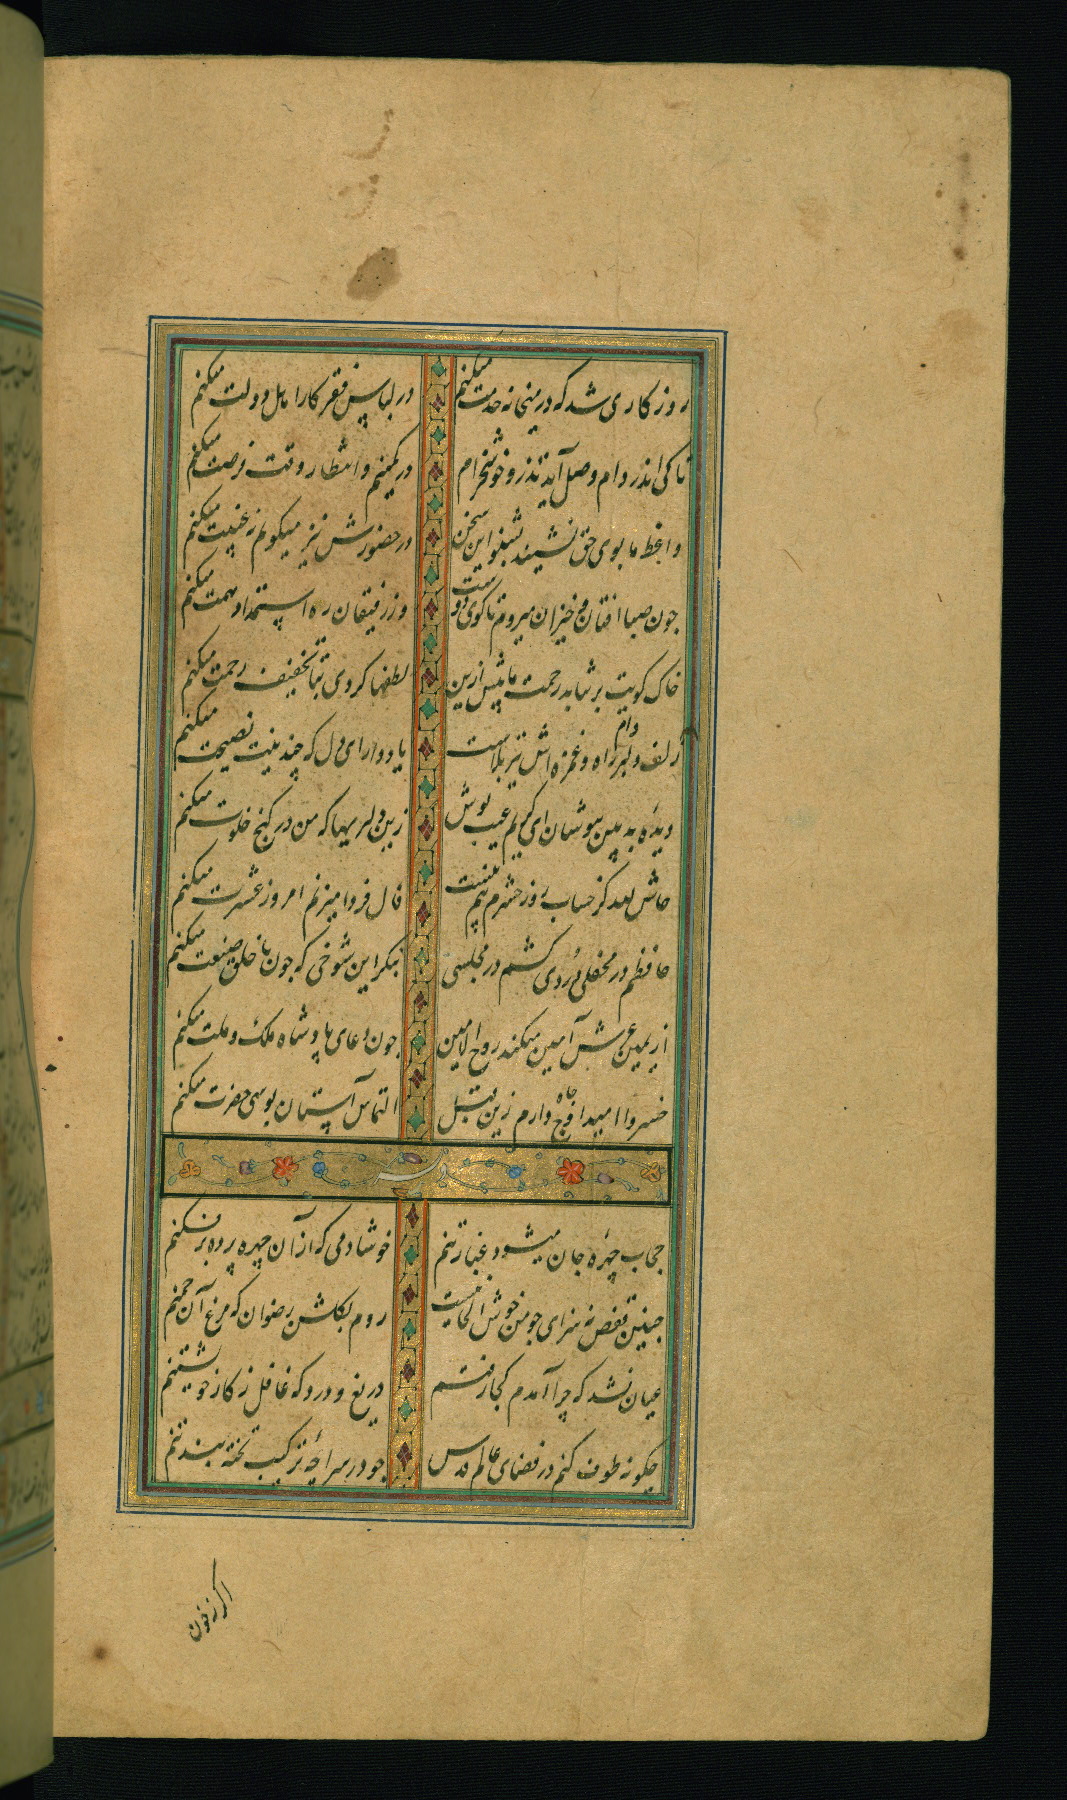 روزکاری شد که در میخانه خدمت میکنم در لباس فقر کار اهل دولت میکنم
تا کی اندر دام وصل آید تذرو خوشخرام در کمینم و انتظار وقت فرصت میکنم
واعظ ما بوی حق نشیند بشنو این سخن در حضورش نیز میکویم نه غیبت میکنم
چون صبا افتان و خیزان میروم تا کوی دوست وز رفیقان ره استمداد همت میکنم
خاک کویت برنتابد زحمت ما پیش ازین لطفها کردی بتا تخفیف زحمت میکنم
زلف دلبر دام راه و غمزه اش تیر بلاست یاد دار ای دل که چندینت نصیحت میکنم
دیدهٔ بدبین بپوشان ای کریم عیب پوش زین دلیریها که من در کنج خلوت میکنم
حاش لله کز حساب روز حشرم بیم نیست فال فردا میزنم امروز عشرت میکنم
حافظم در محفلی دردی کشم در مجلسی بنکر این شوخی که چون با خلق صنعت میکنم
از یمین عرش آمین میکند روح الامین چون دعای پادشاه ملک و ملت میکنم
خسروا امید اوج جاه دارم زین قبل التماس آستان بوسی حضرت میکنم
حجاب چهرهٔ جان میشود غبار تنم خوشا دمی که از آن چهره پرده برفکنم
چنین قفس نه سزای چو من خوش الحانیست روم بکلشن رضوان که مرغ آن چمنم
عیان نشد که چرا آمدم کجا رفتم دریغ و درد که غافل ز کار خویشتنم
چکونه طوف کنم در فضای عالم قدس چو در سراچهٔ ترکیب تخته بند تنم
اکر ز خون